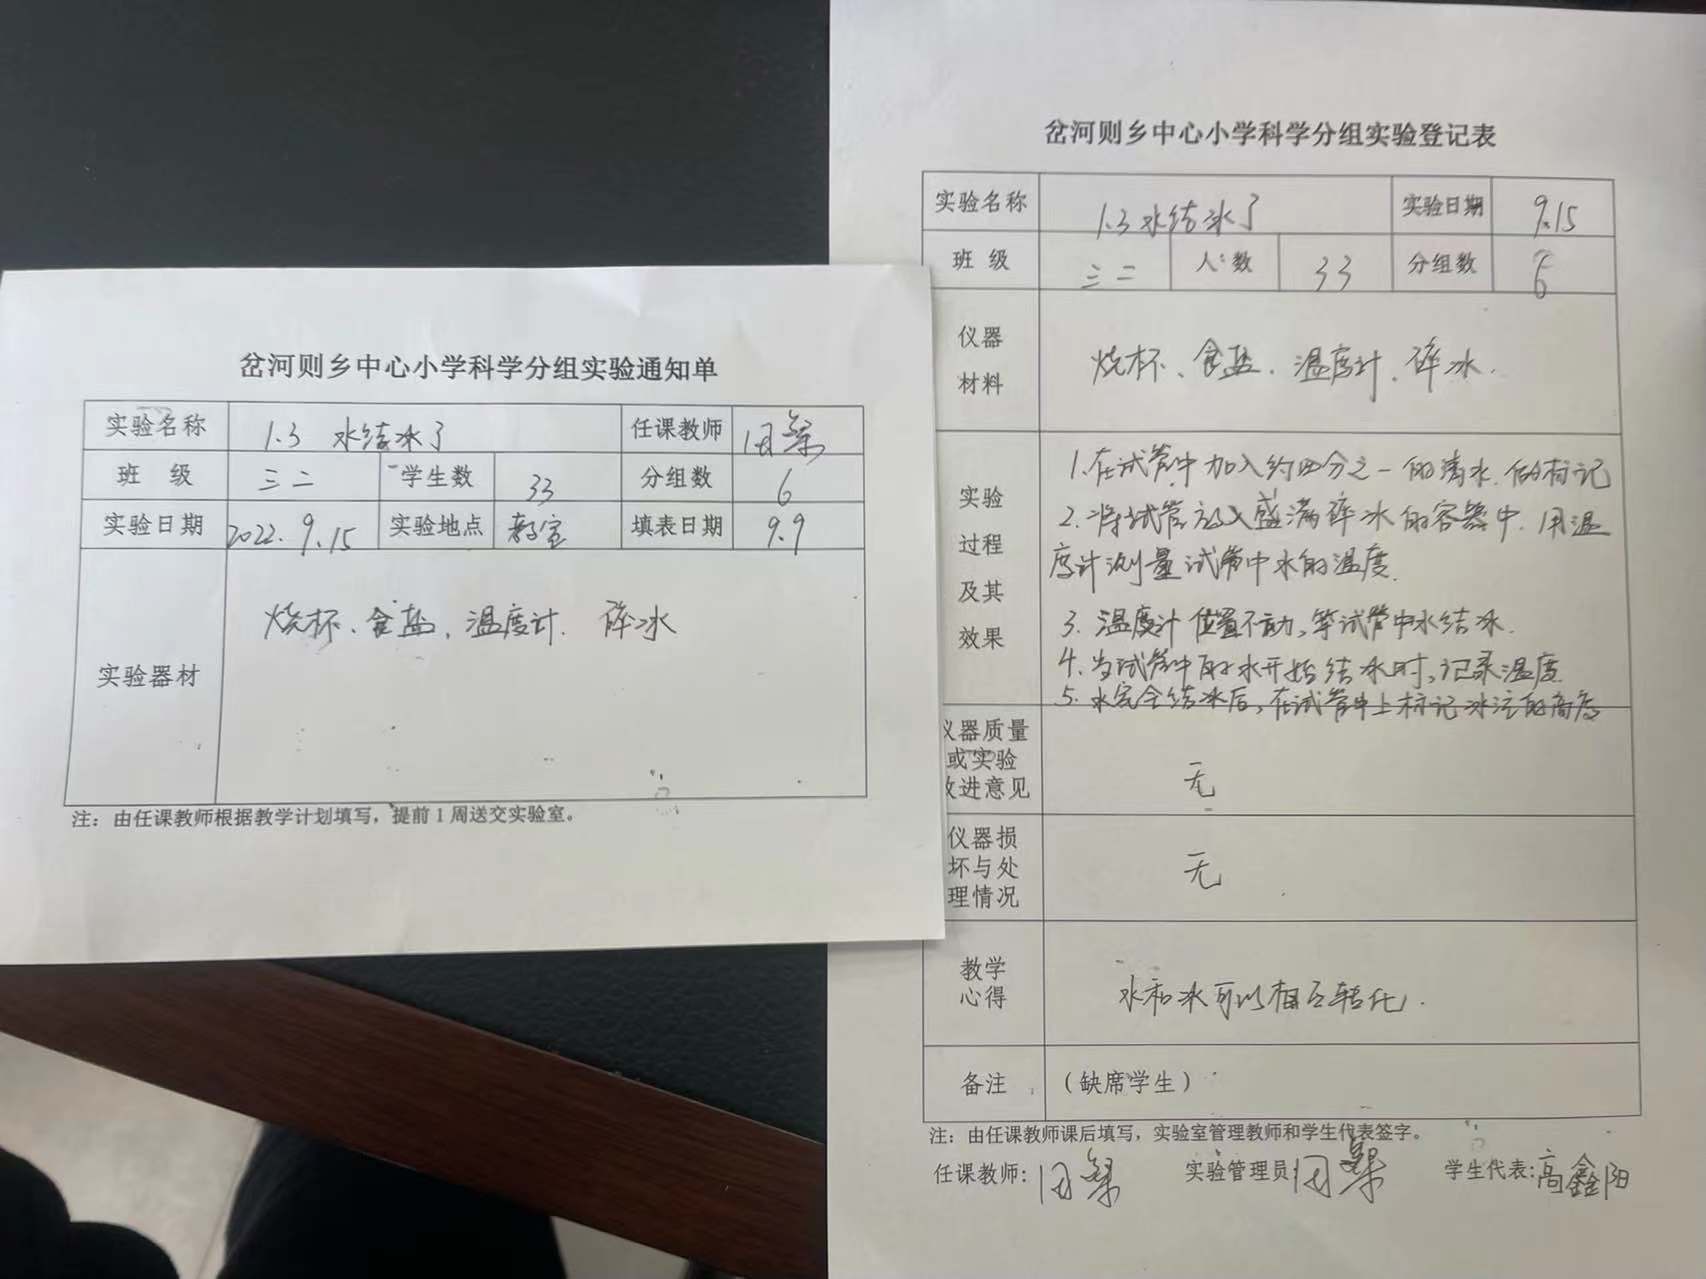 岔河则乡中心小学科学分组实验通知单
实验名称 1.3 水结冰了 任课教师
班 级 三二 学生数 33 分组数 6
实验日期 2022.9.15 实验地点 教室 填表日期 9.9
实验器材 烧杯、食盐、温度计、碎冰
注：由任课教师根据教学计划填写，提前1周送交实验室。
岔河则乡中心小学科学分组实验登记表
实验名称 1.3水结冰了 实验日期 9.15
班 级 三二 人数 33 分组数 6
仪器
材料
烧杯、食盐、温度计、碎冰.
实验
过程
及其
效果
1.在试管中加入约四分之一的清水,做标记
2.将试管放入盛满碎冰的容器中,用温
度计测量试管中水的温度.
3.温度计位置不动,等试管中水结冰.
4.当试管中的水开始结冰时,记录温度
5.水完全结冰后,在试管中上标记冰注的高度
仪器质量
或实验
改进意见
无
仪器损
坏与处
理情况
无
教学
心得
水和冰可以相互转化.
备注 （缺席学生）
注：由任课教师课后填写，实验室管理教师和学生代表签字。
任课教师: 实验管理员 学生代表:高鑫阳